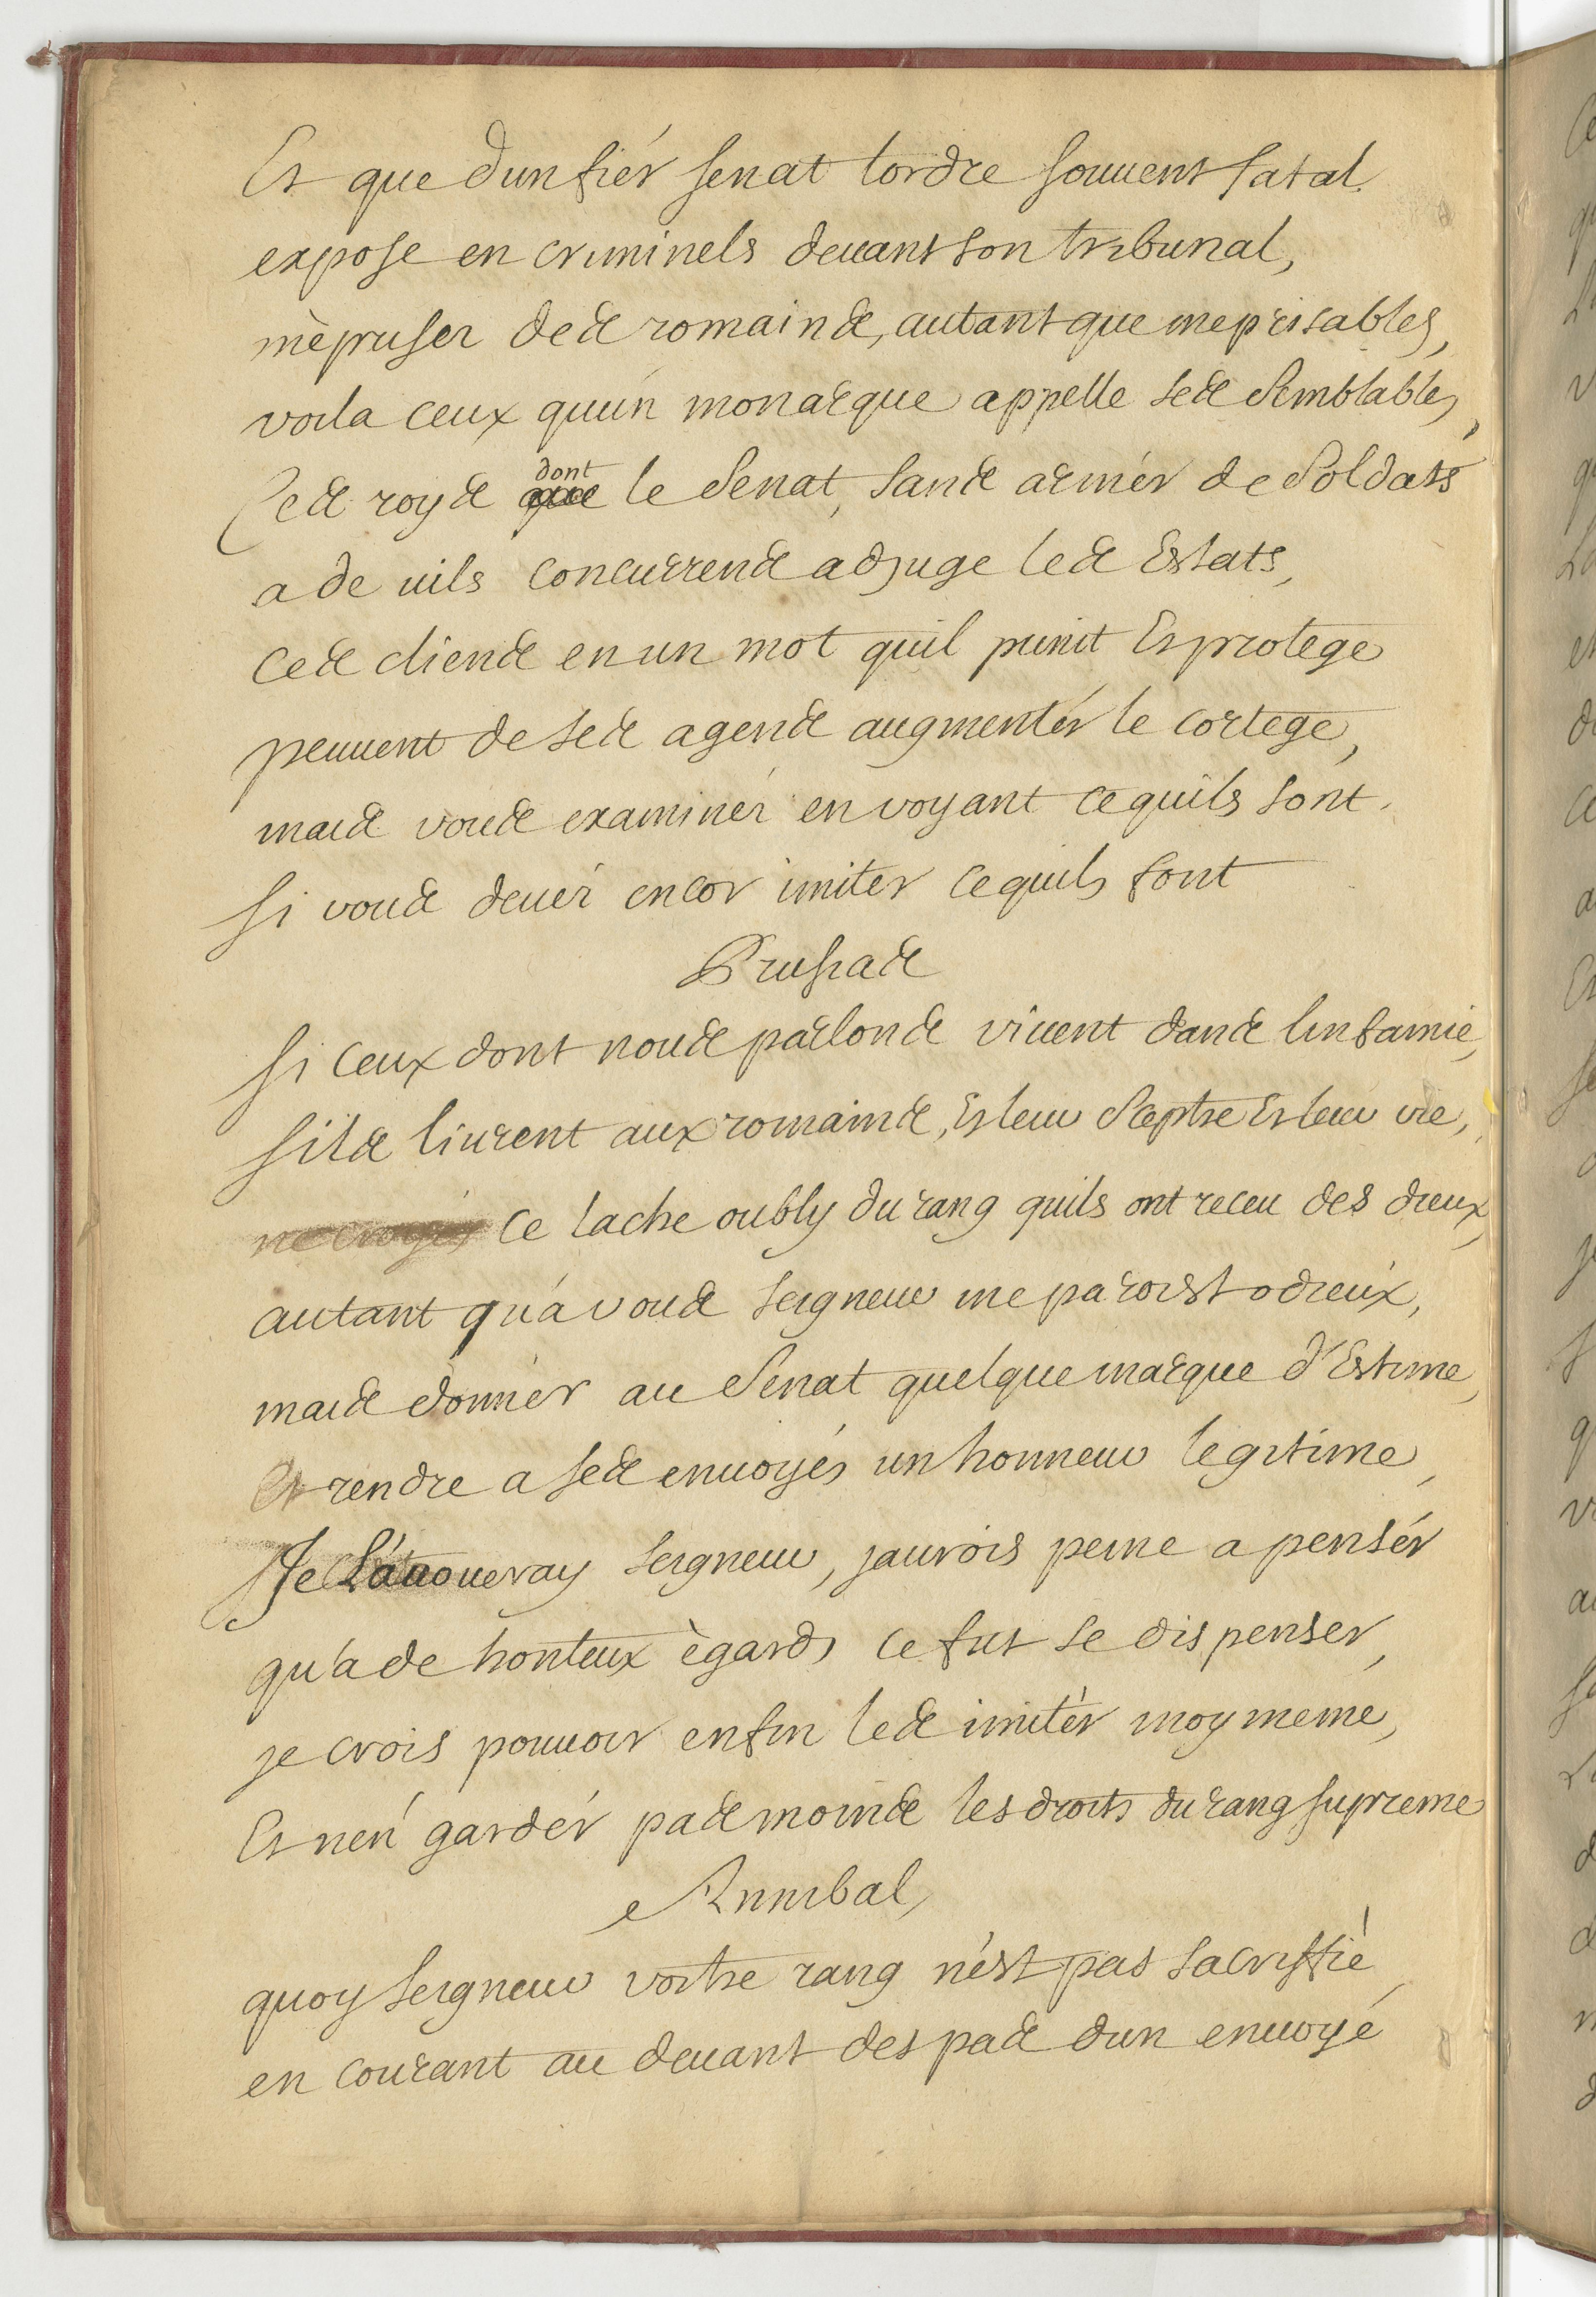 Et que dun fiér senat lordre souuent fatal
expose en criminels deuant son tribunal,
mèpriser des romains, autant que meprisables,
voila ceux quun monarque appelle ses semblables,
Ces roys dont que le Senat, sans armér de Soldats
a de uils concurrens adjuge les Estats,
ces cliens en un mot quil punit Et protege
peuuent de ses agens augmentér le cortege,
mais vous examinér en voyant ce quils sont
si vous deuér encor imiter ce quils font
Prusias
si ceux dont nous parlons viuent dans linfamie,
sils liurent aux romains, Et leur Sceptre Et leur vie,
ne croyés ce lache oubly du rang quils ont receu des dieux,
autant qu'a vous seigneur me paroist odieux,
mais donnér au Senat quelque marque d'Estime,
Et rendre a ses enuoyés un honneur legitime,
Je L'auoueray seigneur, jaurois peine a pensér
qu'a de honteux ègards ce fut se dispenser,
je crois pouuoir enfin les imitér moy meme,
Et nen gardér pas moins les droits du rang supreme
Annibal,
quoy seigneur vostre rang n'est pas sacrifié,
en courant au deuant des pas dun enuoyé